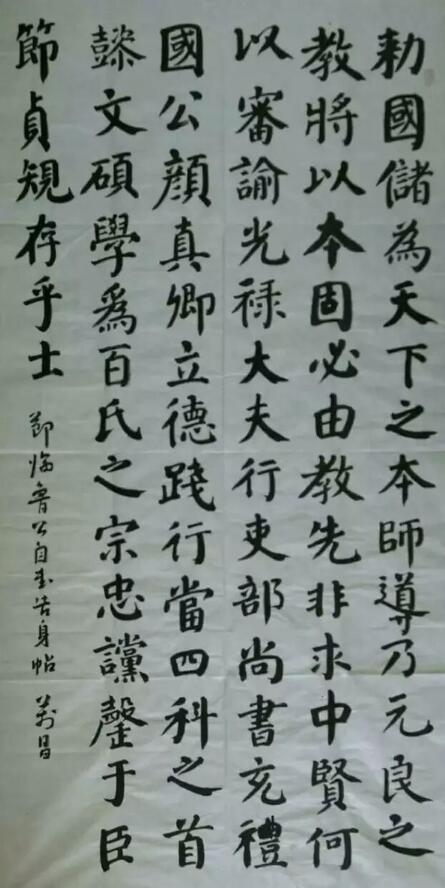 勑國儲為天下之本師導乃元良之
教將以本固必由教先非求中賢何
以審諭光禄大夫行吏部尚書充禮
國公顔真卿立德踐行當四科之首
懿文碩學爲百氏之宗忠讜罄于臣
節貞規存乎士
節臨魯公自書告身帖 萬昌